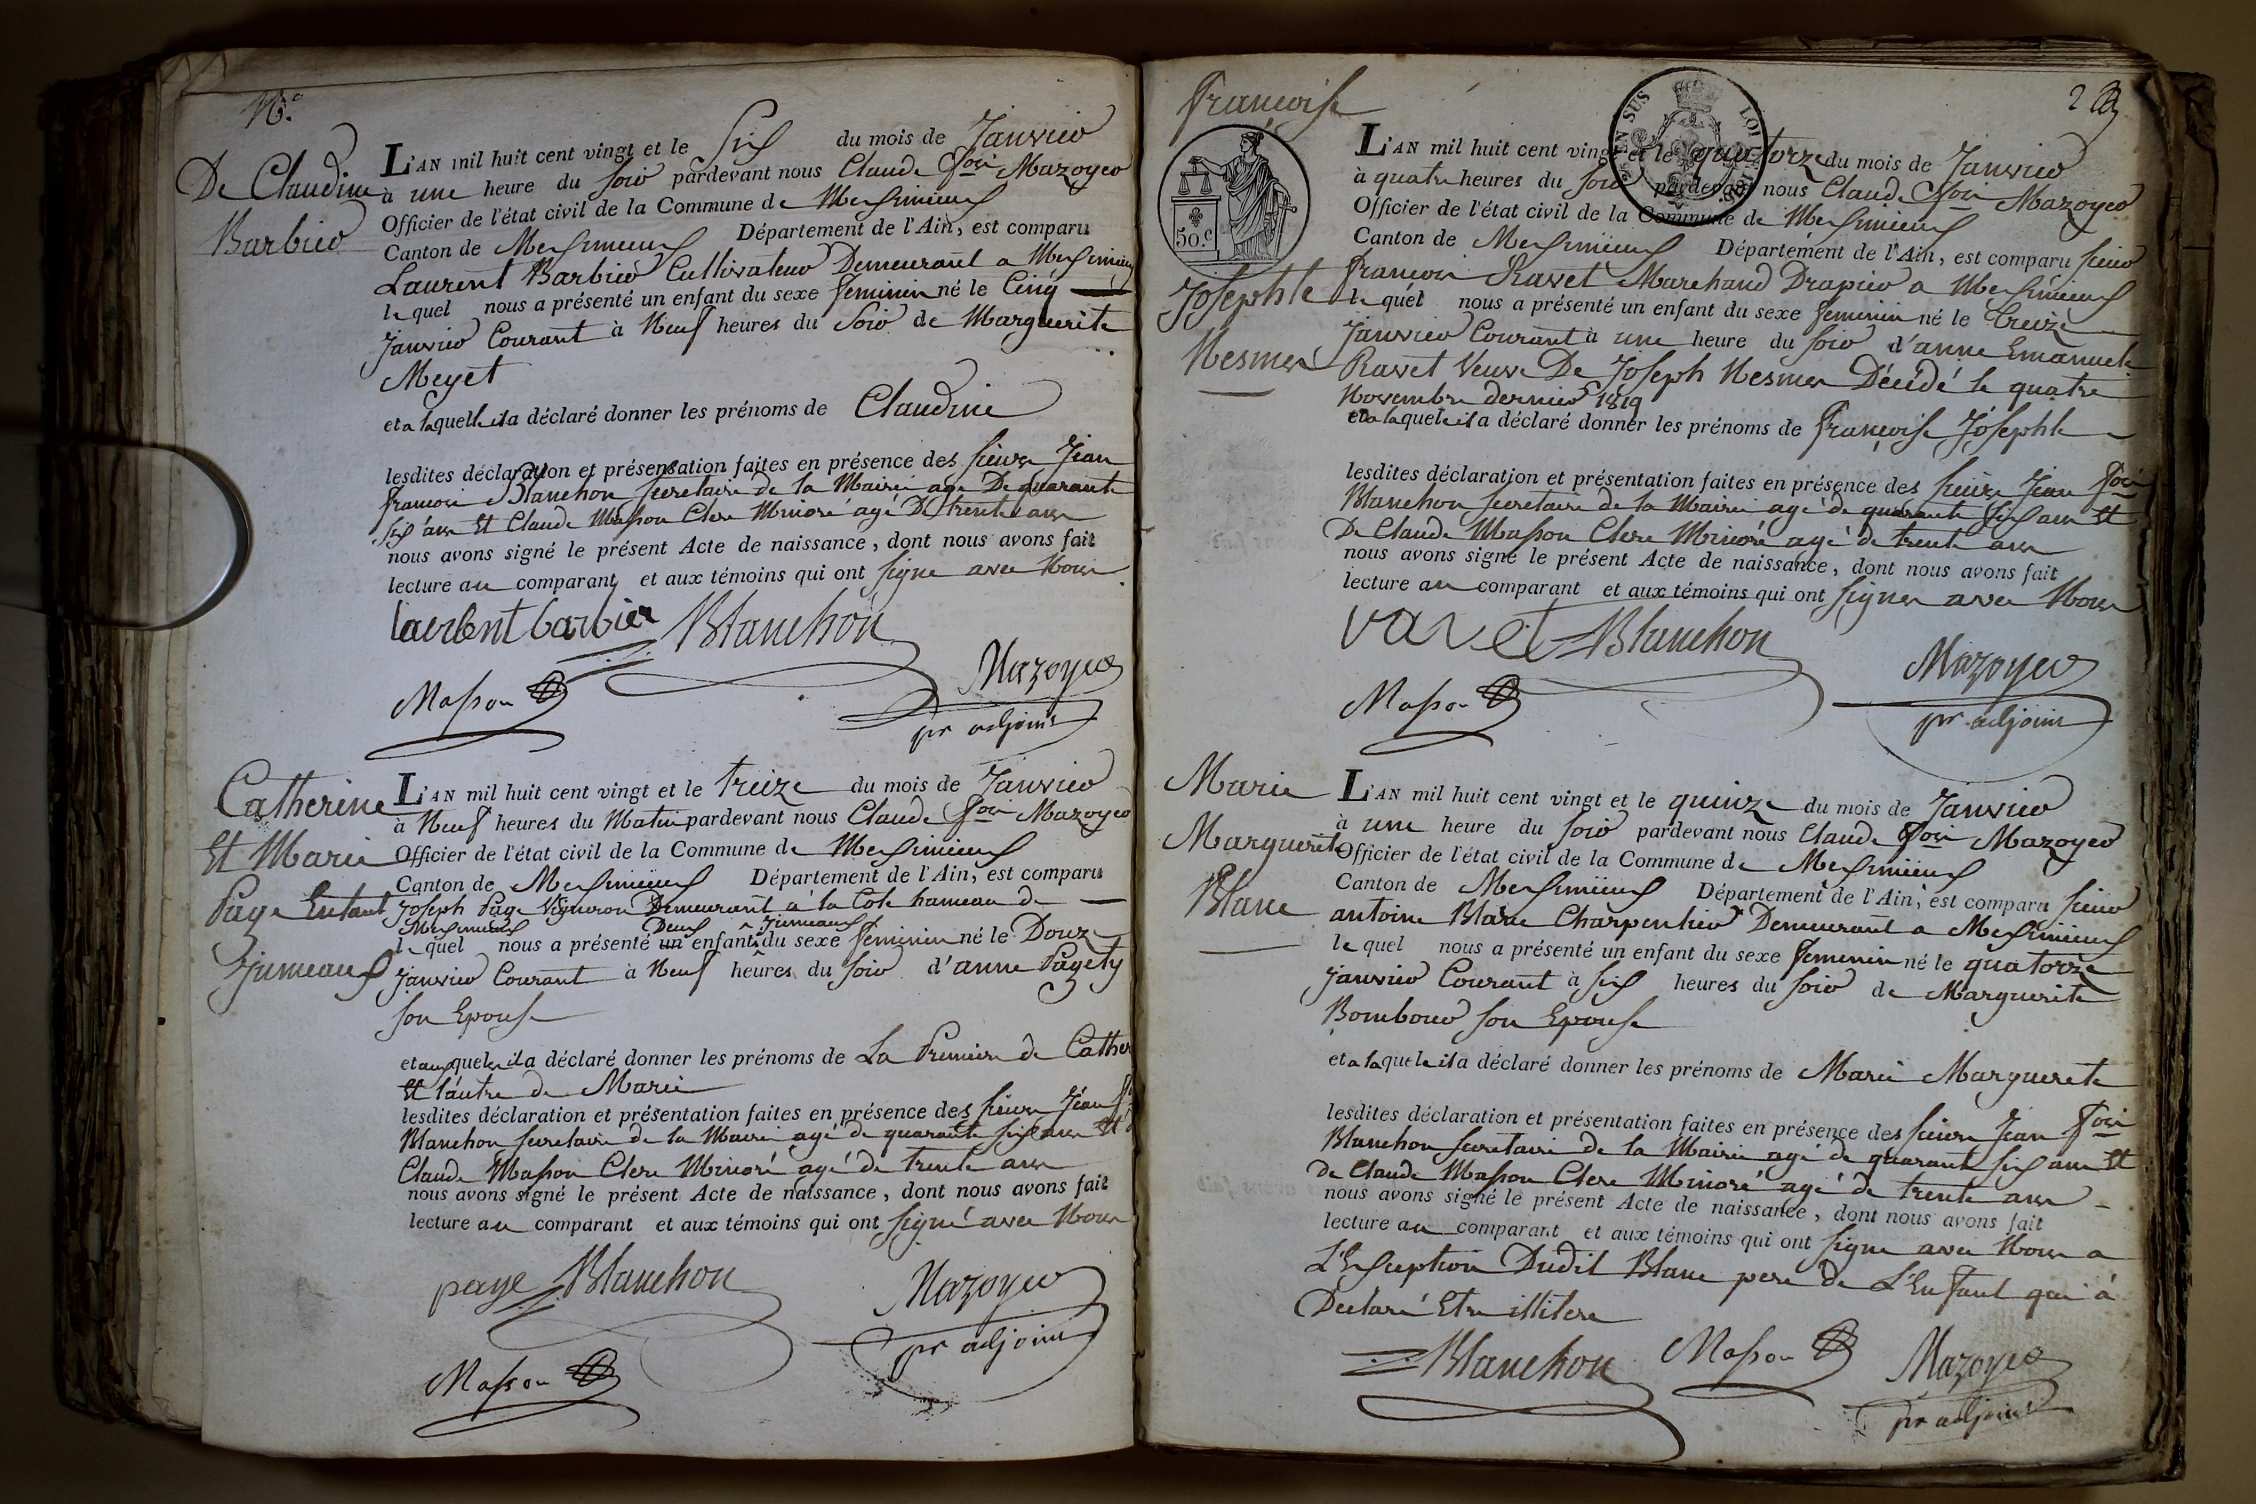 N.o
De Claudine
Barbier
L'AN mil huit cent vingt et le Six du mois de Janvier
à une heure du Soir pardevant nous Claude foie Mazoyer
Officier de l'état civil de la Commune de Messimieux
Canton de Messimieux Département de l'Ain, est comparu
Laurent Barbier Cultivateur Demeurant a Messimieux
le quel nous a présenté un enfant du sexe feminin né le Cinq
Janvier Courant à Neuf heures du Soir de Marguerite
Meyet
et a laquelle il a déclaré donner les prénoms de Claudine
lesdites déclaration et présensation faites en présence des sieurs Jean
françois Blanchon secretaire de la Mairie agé De quarante
six ans Et Claude Masson Clerc Minoré agé De trente ans
nous avons signé le présent Acte de naissance, dont nous avons fait
lecture au comparant et aux témoins qui ont signé avec Nous.
laurent barbier Blanchon
Masson Mazoyer
pr adjoint
Catherine
Et Marie
Page Enfant
Jumeaux
L'AN mil huit cent vingt et le treize du mois de Janvier
à Neuf heures du Matin pardevant nous Claude foie Mazoyer
Officier de l'état civil de la Commune de Messimieux
Canton de Messimieux Département de l'Ain, est comparu
Joseph Page Vigneron Demeurant à la Cote hameau de
Messimieux Deux Jumeaux
le quel nous a présenté un enfant du sexe feminin né le Douze
Janvier Courant à Neuf heures du soir d'anne Pagety
son Epouse
et auxquelles il a déclaré donner les prénoms de La Premiere de Cather
Et l'autre de Marie
lesdites déclaration et présentation faites en présence des sieurs Jean
Blanchon secretaire de la Mairie agé de quarante six ans Et
Claude Masson Clerc Minoré agé de trente ans
nous avons signé le présent Acte de naissance, dont nous avons fait
lecture au comparant et aux témoins qui ont signé avec Nous
page Blanchon Mazoyer
pr adjoint
Masson
2
françoise
50.c
Josephte
Nesmer
L'AN mil huit cent vingt et le quatorze du mois de Janvier
à quatre heures du soir pardevant nous Claude foie Mazoyer
Officier de l'état civil de la Commune de Messimieux
Canton de Messimieux Département de l'Ain, est comparu sieur
françois Ravet Marchand Drapier a Messimieux
le quel nous a présenté un enfant du sexe feminin né le treize
Janvier Courant à une heure du soir d'anne Emanuele
Ravet Veuve De Joseph Nesmer Décédé le quatre
Novembre dernier 1819
et a laquele il a déclaré donner les prénoms de françoise Josephte
lesdites déclaration et présentation faites en présence des sieurs Jean foie
Blanchon secretaire de la Mairie agé de quarante six ans Et
De Claude Masson Clerc Minoré agé de trente ans
nous avons signé le présent Acte de naissance, dont nous avons fait
lecture au comparant et aux témoins qui ont signer avec Nous
ravet Blanchon
Masson Mazoyer
pr adjoint
Marie
Marguerite
Blanc
L'AN mil huit cent vingt et le quinze du mois de Janvier
à une heure du soir pardevant nous Claude foie Mazoyer
Officier de l'état civil de la Commune de Messimieux
Canton de Messimieux Département de l'Ain, est comparu sieur
antoine Blanc Charpentier Demeurant a Messimieux
le quel nous a présenté un enfant du sexe feminin né le quatorze
Janvier Courant à six heures du soir de Marguerite
Bombour son Epouse
et a laquele il a déclaré donner les prénoms de Marie Marguerete
lesdites déclaration et présentation faites en présence des sieurs Jean foie
Blanchon secretaire de la Mairie agé de quarante six ans Et
de Claude Masson Clerc Minoré agé de trente ans
nous avons signé le présent Acte de naissance, dont nous avons fait
lecture au comparant et aux témoins qui ont signe avec Nous a
L'Exception Dudit Blanc pere de L'Enfant qui à
Declaré Etre illitere
Blanchon Masson Mazoyer
pr adjoint